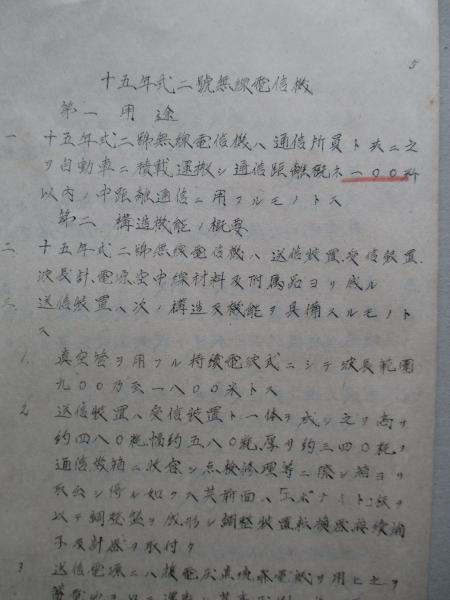 5
十五年式二號無線電信機
第一 用途
一 十五年式二號無線電信機ハ通信所員ト共ニ之
ヲ自動車ニ積載運搬シ通信距離概ネ一〇〇粁
以内ノ中距離通信ニ用フルモノトス
第二 構造機能ノ概要
二 十五年式二號無線電信機ハ送信装置、受信装置、
波長計、電源、空中線材料及附属品ヨリ成ル
三 送信装置ハ次ノ構造及機能ヲ具備スルモノト
ス
1. 真空管ヲ用フル持續電波式ニシテ波長範圍
九〇〇乃至一八〇〇米トス
2 送信装置ハ受信装置ト一体ヲ成シ之ヲ高サ
約四八〇粍、幅約五八〇粍、厚サ約三四〇粍ノ
通信機箱ニ收容シ点檢修理等ニ際シ箱ヨリ
取出シ得ル如クハ其前面ハ「エボナイト」板ヲ
以テ調整盤ヲ成形シ調整装置転換器接續
及計器ヲ取付ク
3 送信電源ニハ